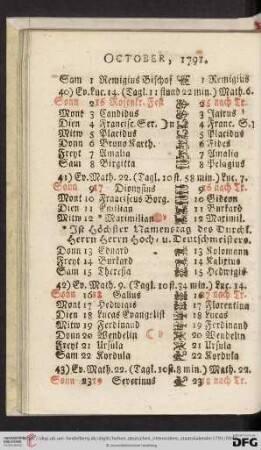 OCTOBER, 1791.
Sam 1 Remigius Bischof 1 Remigius
40) Ev. Luc. 14. (Tagl. 11 stund 22 min.) Math. 6.
Sonn 2 Rosenkr. Fest nach Tr.
Mont 3 Candidus 3 Jairus
Dien 4 Francisc. Ser. 4 Franc. S.
Mitw 5 Placidus 5 Placidus
Donn 6 Bruno Karth. 6 Fides
Freyt 7 Amalia 7 Amalia
Sam 8 Birgitta 8 Pelagius
41) Ev. Math. 22. (Tagl. 10 st. 58 min.) Luc. 7.
Sonn 9 Dionysius nach Tr.
Mont 10 Franciscus Borg. 10 Gideon
Dien 11 Emilian 11 Burkard
Mitw 12 * Maximilian 12 Maximil.
* Ist Höchster Namenstag des Durchl.
Herrn Herrn Hoch- u. Deutschmeisters.
Donn 13 Eduard 13 Kolomann
Freyt 14 Burkard 14 Calixtus
Sam 15 Theresia 15 Hedwigis
42) Ev. Math. 9. (Tagl. 10 st. 34 min.) Luc. 14.
Sonn 16 Gallus nach Tr.
Mont 17 Hedwigis 17 Florentina
Dien 18 Lucas Evangelist 18 Lucas
Mitw 19 Ferdinand 19 Ferdinand
Donn 20 Wendelin 20 Wendelin
Freyt 21 Ursula 21 Ursula
Sam 22 Kordula 22 Kordula
43) Ev. Math. 22. (Tagl. 10 st. 8 min.) Math. 22.
Sonn 23 Severinus nach Tr.
DFG